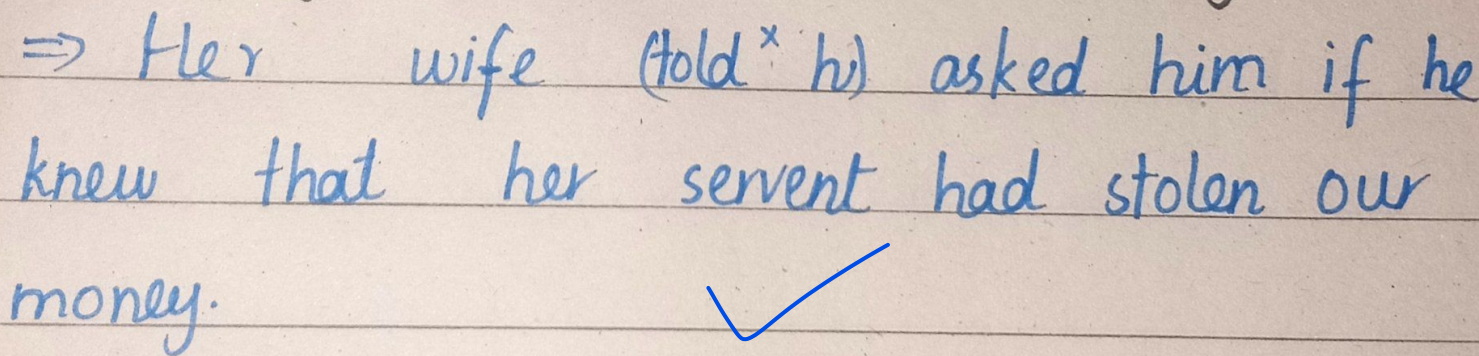 ⇒ Her wife (told × h) asked him if he
knew that her servent had stolen our
money.